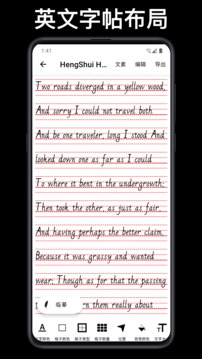 英文字帖布局
1:41
HengShui H...
文素
编辑
导出
Two roads diverged in a yellow wood,
And sorry I could not travel both
And be one traveler, long I stood And
looked down one as far as I could
To where it bent in the undergrowth;
Then took the other, as just as fair,
And having perhaps the better claim,
Because it was grassy and wanted
wear; Though as for that the passing
them really about
临摹